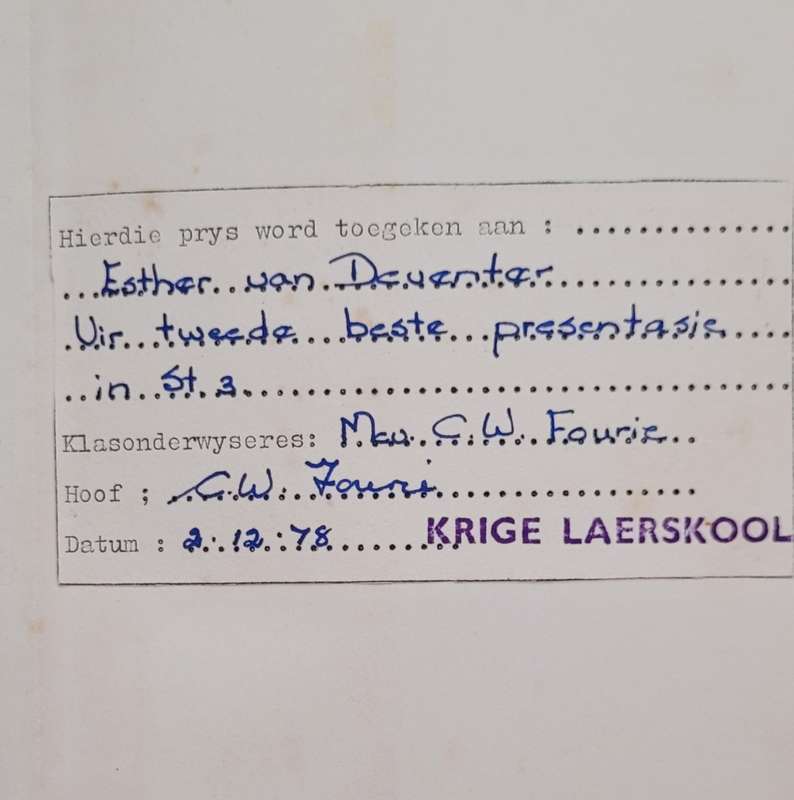 Hierdie prys word toegeken aan : ..............
...Esther..van.Deventer....................
.Vir..tweede...beste...presentasie....
..in..St.3......................................
Klasonderwyseres: Mev..C.W..Fourie..
Hoof ; C.W. Fourie..................
Datum : 2.12.78......... KRIGE LAERSKOOL